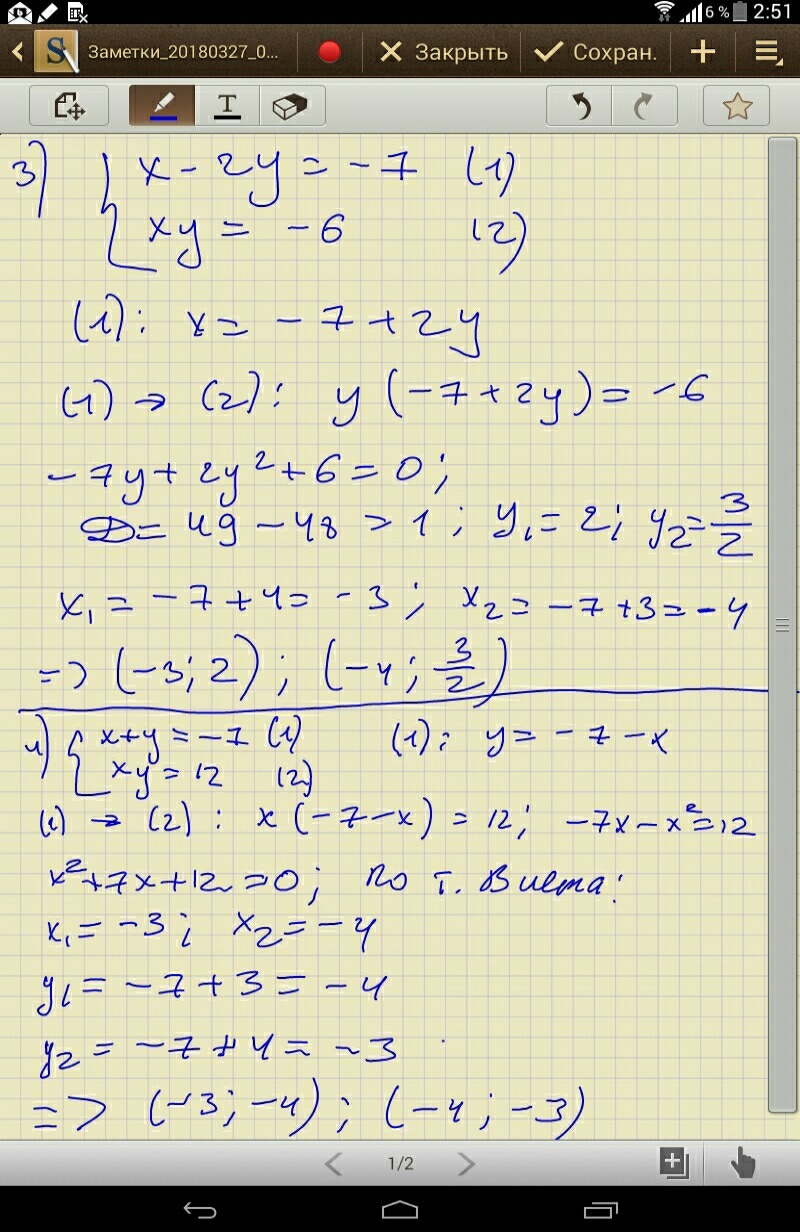 6% 2:51
Заметки_20180327_0... Закрыть Сохран.
T
3) { x - 2y = -7 (1)
xy = -6 (2)
(1): x = -7 + 2y
(1) → (2): y(-7 + 2y) = -6
-7y + 2y² + 6 = 0;
D = 49 - 48 = 1; y₁ = 2; y₂ = 3/2
x₁ = -7 + 4 = -3; x₂ = -7 + 3 = -4
=> (-3; 2); (-4; 3/2)
4) { x+y = -7 (1) (1): y = -7 - x
xy = 12 (2)
(1) → (2): x(-7-x) = 12; -7x - x² = 12
x² + 7x + 12 = 0; По т. Виета:
x₁ = -3; x₂ = -4
y₁ = -7 + 3 = -4
y₂ = -7 + 4 = -3
=> (-3; -4); (-4; -3)
1/2